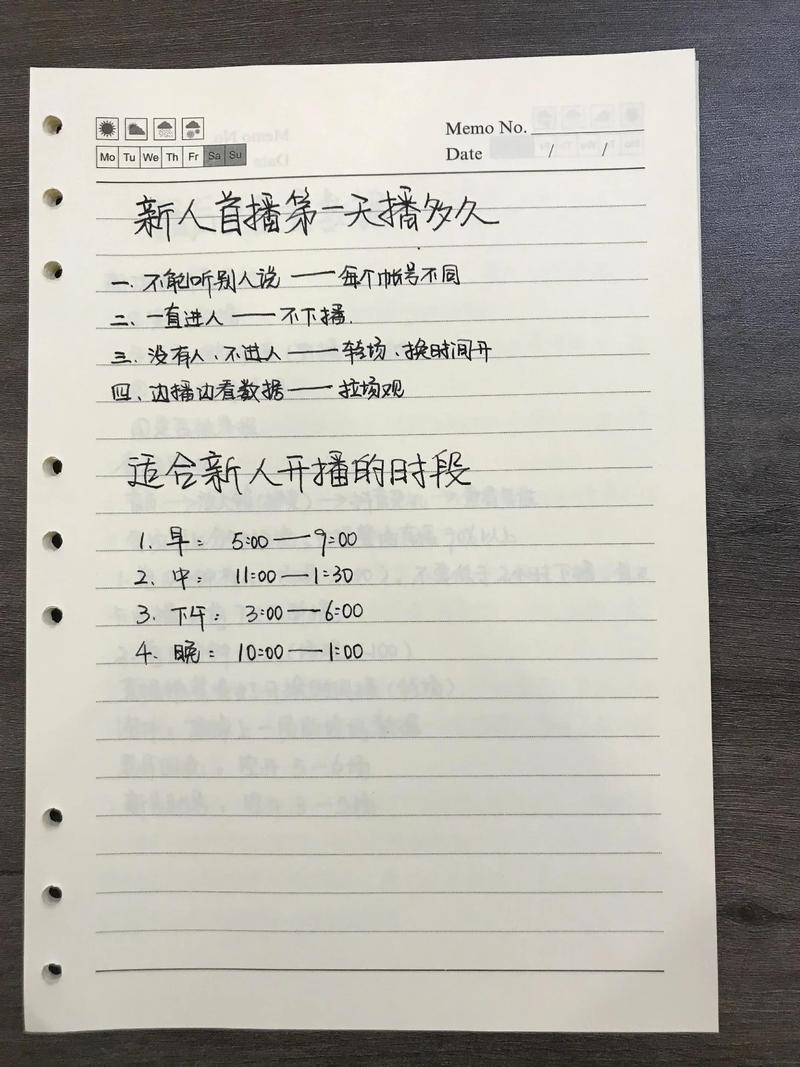 Memo No.
Mo Tu We Th Fr Sa Su
Date / /
新人首播第一天播多久
一、不能听别人说——每个帐号不同
二、一直进人——不下播.
三、没有人、不进人——转场、换时间开
四、边播边看数据——拉场观
适合新人开播的时段
1. 早： 5:00——9:00
2. 中： 11:00——1:30
3. 下午： 3:00——6:00
4. 晚： 10:00——1:00